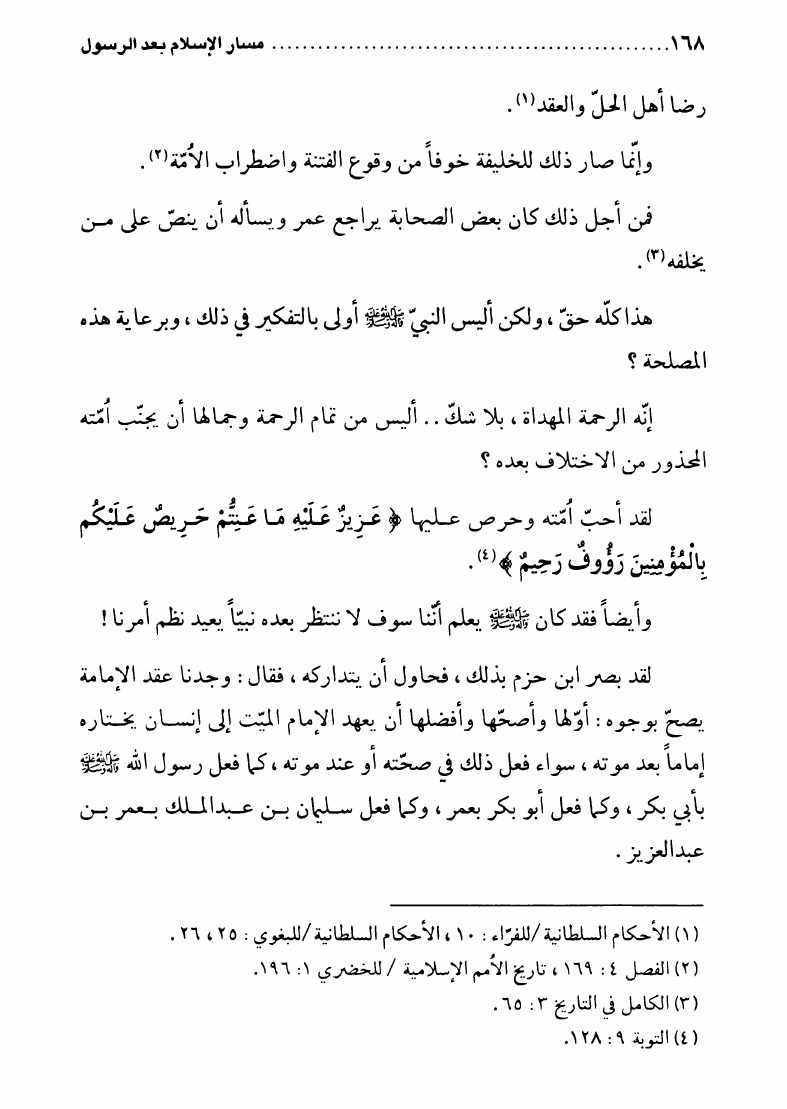 ١٦٨ .................................................... مسار الإسلام بعد الرسول
رضا أهل الحلّ والعقد(١).
وإنّما صار ذلك للخليفة خوفاً من وقوع الفتنة واضطراب الاُمّة(٢).
فمن أجل ذلك كان بعض الصحابة يراجع عمر ويسأله أن ينصّ على مـن
يخلفه(٣).
هذا كلّه حقّ ، ولكن أليس النبيّ ﷺ أولى بالتفكير في ذلك ، وبرعاية هذه
المصلحة ؟
إنّه الرحمة المهداة ، بلا شكّ .. أليس من تمام الرحمة وجمالها أن يجنّب اُمّته
المحذور من الاختلاف بعده ؟
لقد أحبّ اُمّته وحرص عـليها ﴿ عَـزِيزٌ عَـلَيْهِ مَـا عَـنِتُّمْ حَـرِيصٌ عَـلَيْكُم
بِالْمُؤْمِنِينَ رَؤُوفٌ رَحِيمٌ ﴾(٤).
وأيضاً فقد كان ﷺ يعلم أنّنا سوف لا ننتظر بعده نبيّاً يعيد نظم أمرنا !
لقد بصر ابن حزم بذلك ، فحاول أن يتداركه ، فقال : وجدنا عقد الإمامة
يصحّ بوجوه : أوّلها وأصحّها وأفضلها أن يعهد الإمام الميّت إلى إنسـان يخـتاره
إماماً بعد موته ، سواء فعل ذلك في صحّته أو عند موته ، كما فعل رسول الله ﷺ
بأبي بكر ، وكما فعل أبو بكر بعمر ، وكما فعل سـليمان بـن عـبدالمـلك بـعمر بـن
عبدالعزيز .
(١) الأحكام السلطانية /للفرّاء : ١٠ ، الأحكام السلطانية /للبغوي : ٢٥ ، ٢٦ .
(٢) الفصل ٤ : ١٦٩ ، تاريخ الأُمم الإسلامية / للخضري ١ : ١٩٦.
(٣) الكامل في التاريخ ٣ : ٦٥ .
(٤) التوبة ٩ : ١٢٨.